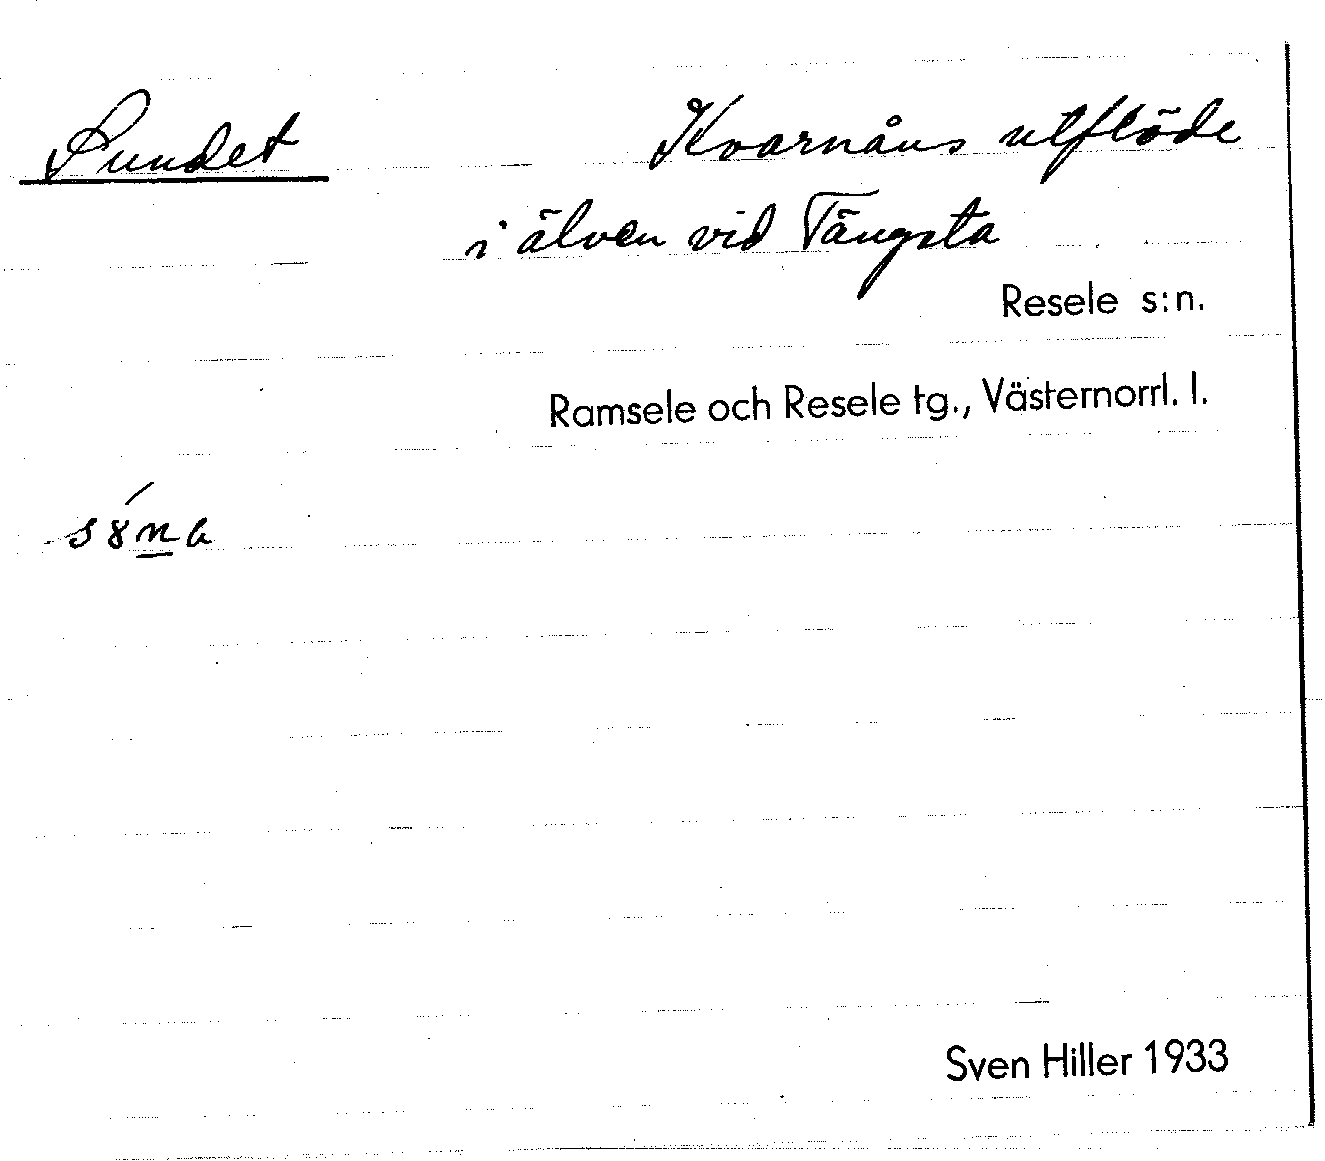 Sundet Kvarnåns utflöde
i älven vid Tängsta
Resele s:n.
Ramsele och Resele tg., Västernorrl. l.
Sven Hiller 1933